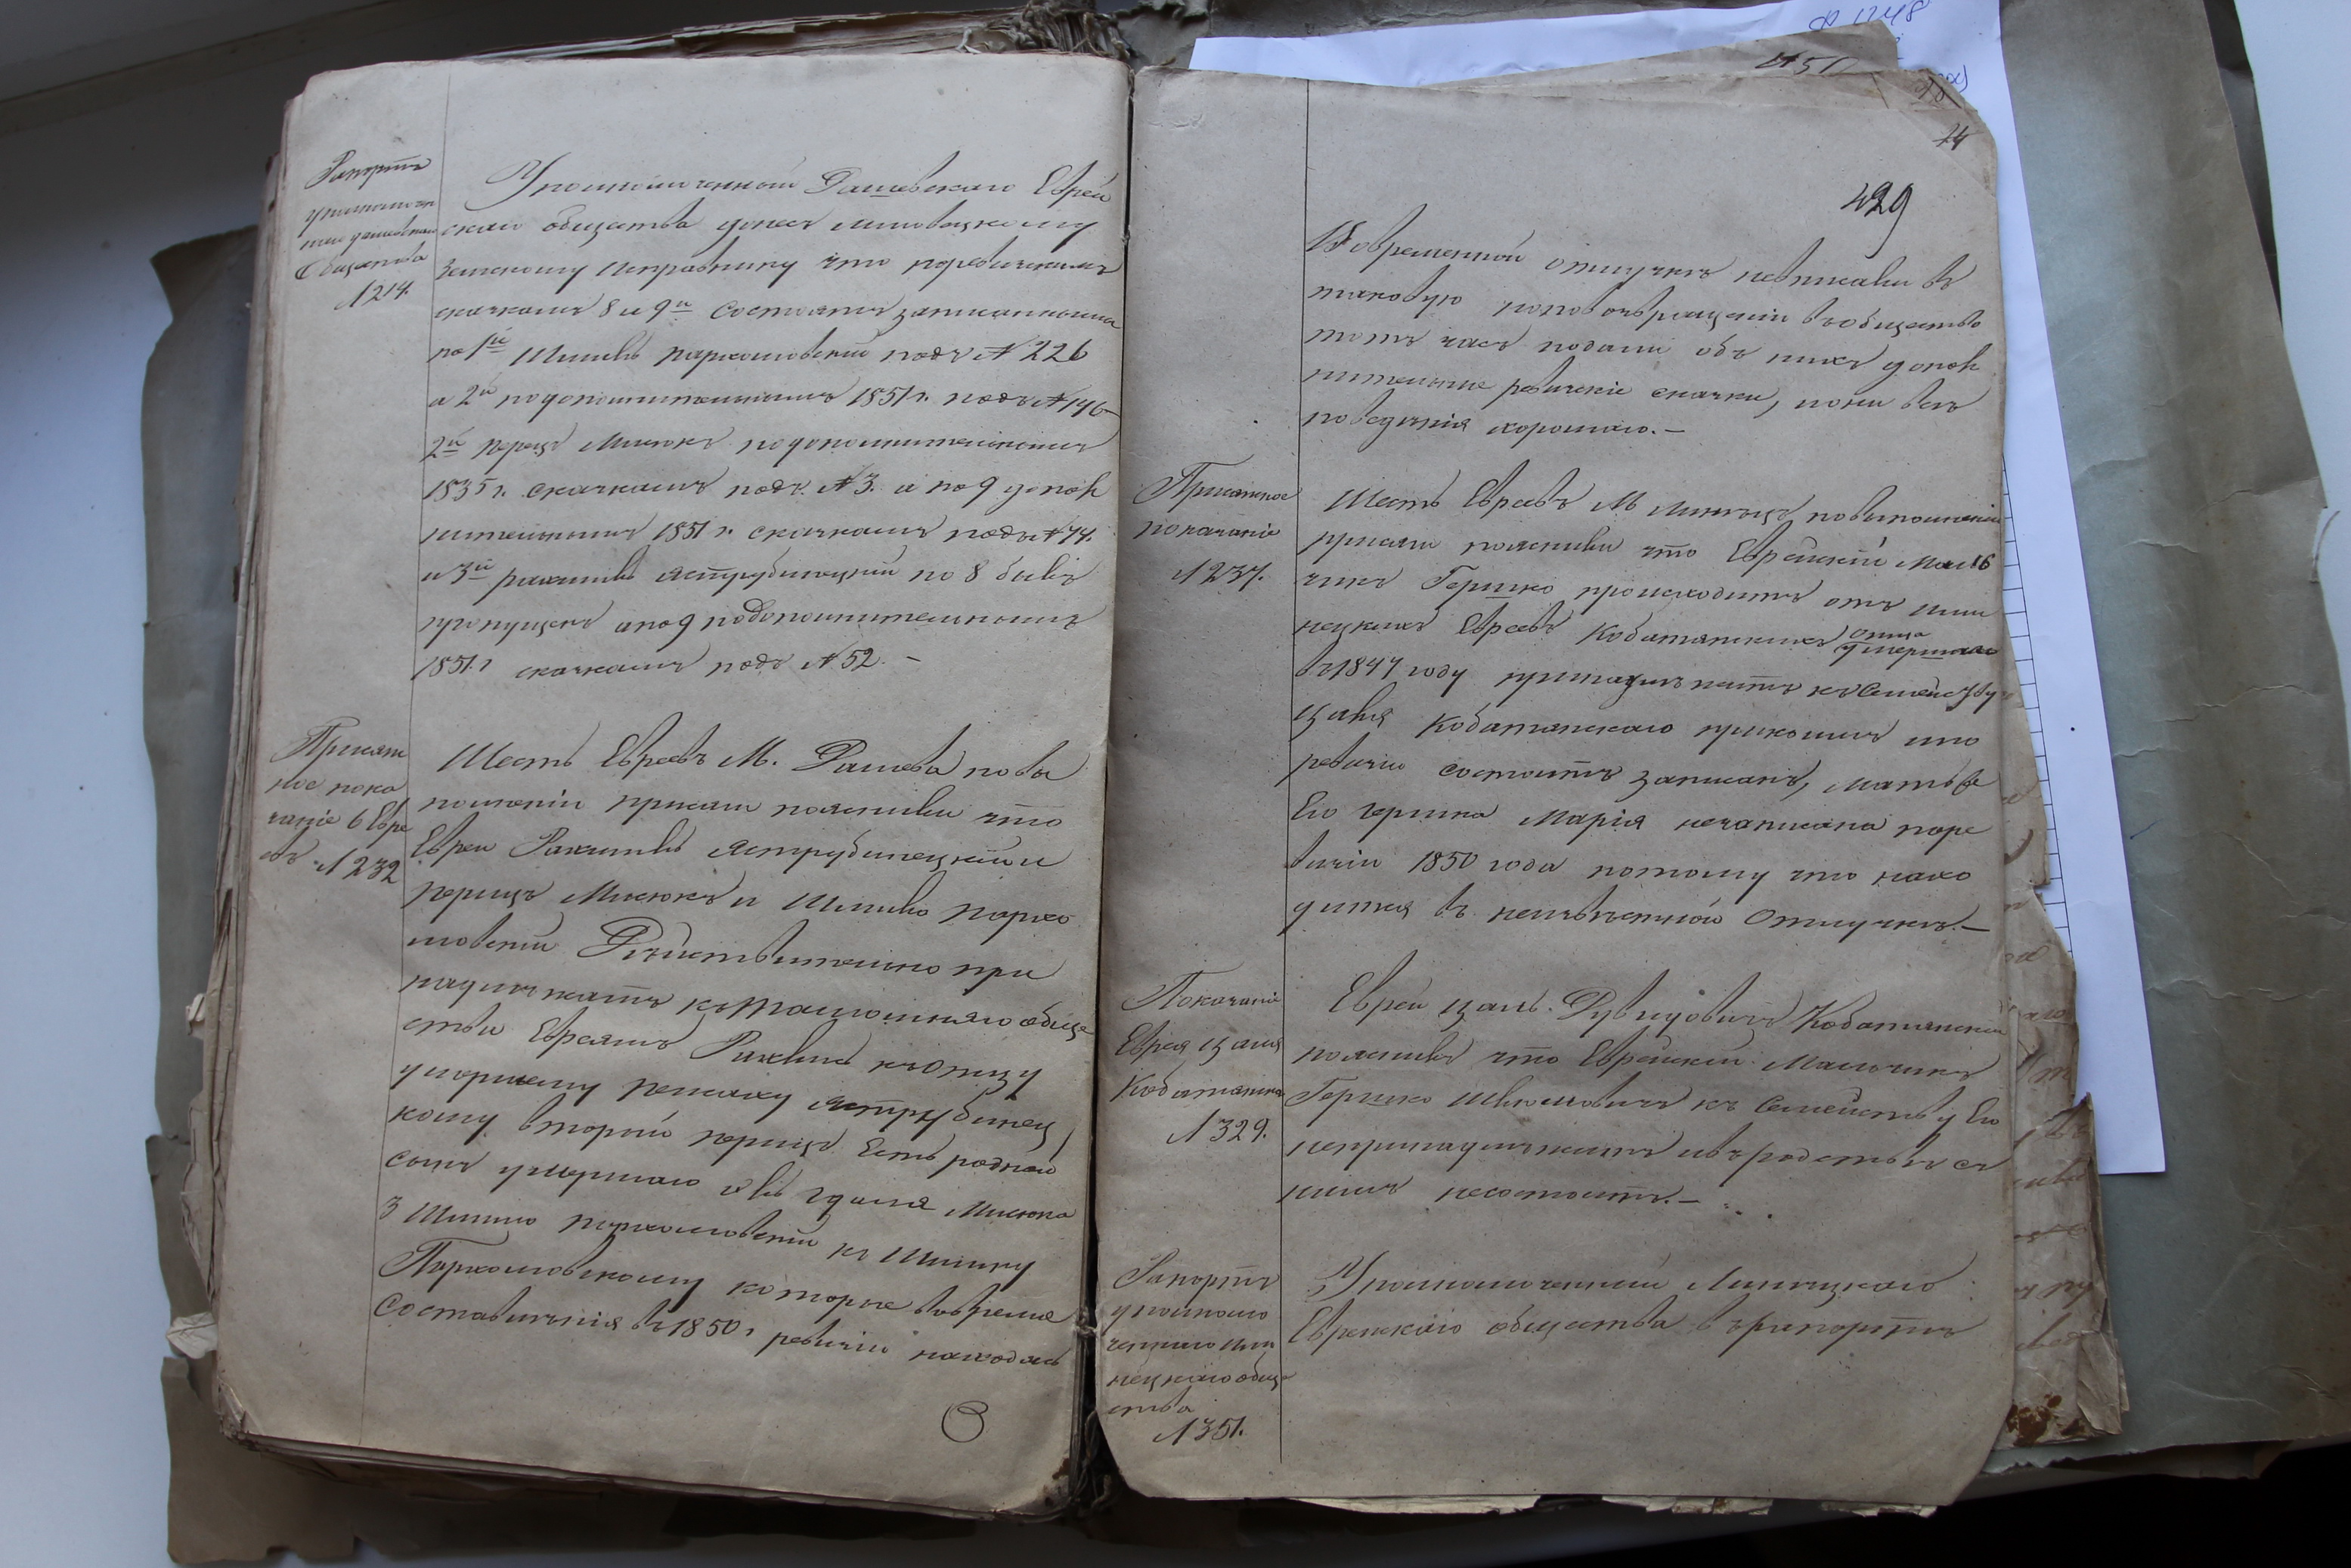 Рапортъ
уполномочен
наго дашевскаго
Общества
№ 214.
Уполномоченный Дашевскаго Еврей
скаго общества донесъ липовецкому
Земскому Исправнику что поревизскимъ
сказкамъ 8 и 9й Состоятъ записанными
по 1й Шмиль пархомовскій подъ № 226
а 2й подополнительнымъ 1851 г. подъ № 146
2й перецъ Мисюкъ подополнительнымъ
1835 г. сказкамъ подъ № 3. и по 9 допол
нительнымъ 1851 г. сказкамъ подъ № 74.
и 3й рахмиль Яструбинецкій по 8 бывъ
пропущенъ а по 9 подополнительнымъ
1851. г сказкамъ подъ № 52. –
Присяж
ное пока
заніе 6 Евре
евъ № 232
Шесть Евреевъ М. Дашева по вы
полненіи присяги пояснили что
Евреи Рахмиль Яструбинецкій и
перецъ Мисюкъ и Шмилько пархо
мовскій Дѣйствительно при
надлежатъ къ тамошнему обще
ству Евреямъ Рахмиль къ Отцу
умершему Яструбинец
кому второй перецъ Есть родной
сынъ умершаго Мисюка
3 Шмилю пархомовскій къ Шмилку
Пархомовскому которые вовремя
Составленія въ 1850 г ревизіи находясь
№ 51
24
429
Во временной отлучкѣ невписаны въ
таковую поповозвращеніи въ общество
тотъ часъ поданы объ нихъ допол
нительные ревизскіе сказки, и они всѣ
поведенія хорошаго. –
Присяжное
показаніе
№ 237.
Шесть Евреевъ М Линецъ повыполненіи
присяги пояснили что Еврейскій Маль
чикъ Гершко происходитъ отъ лин
нецкихъ Евреевъ Кобатянскихъ отца
умершаго
въ 1847 году принадлежитъ къ Семейству
цаля Кобатанскаго прикоемъ и по
ревизіи состоитъ записанъ, мать же
Его гершка Марія незаписана поре
визіи 1850 года потому что нахо
дится въ неизвѣстной Отлучкѣ. –
Показаніе
Еврея цаля
Кобатянска
№ 329.
Еврей цаль. Дувидовичъ Кобатянскій
пояснилъ что Еврейскій Мальчикъ
Гершко къ Семейству Его
непринадлежитъ и въ родствѣ съ
нимъ несостоитъ. –
Рапортъ
уполномо
ченнаго лин
нецкаго обще
ства
№ 351.
Уполномоченный Линецкаго
Еврейскаго общества въ рапортѣ